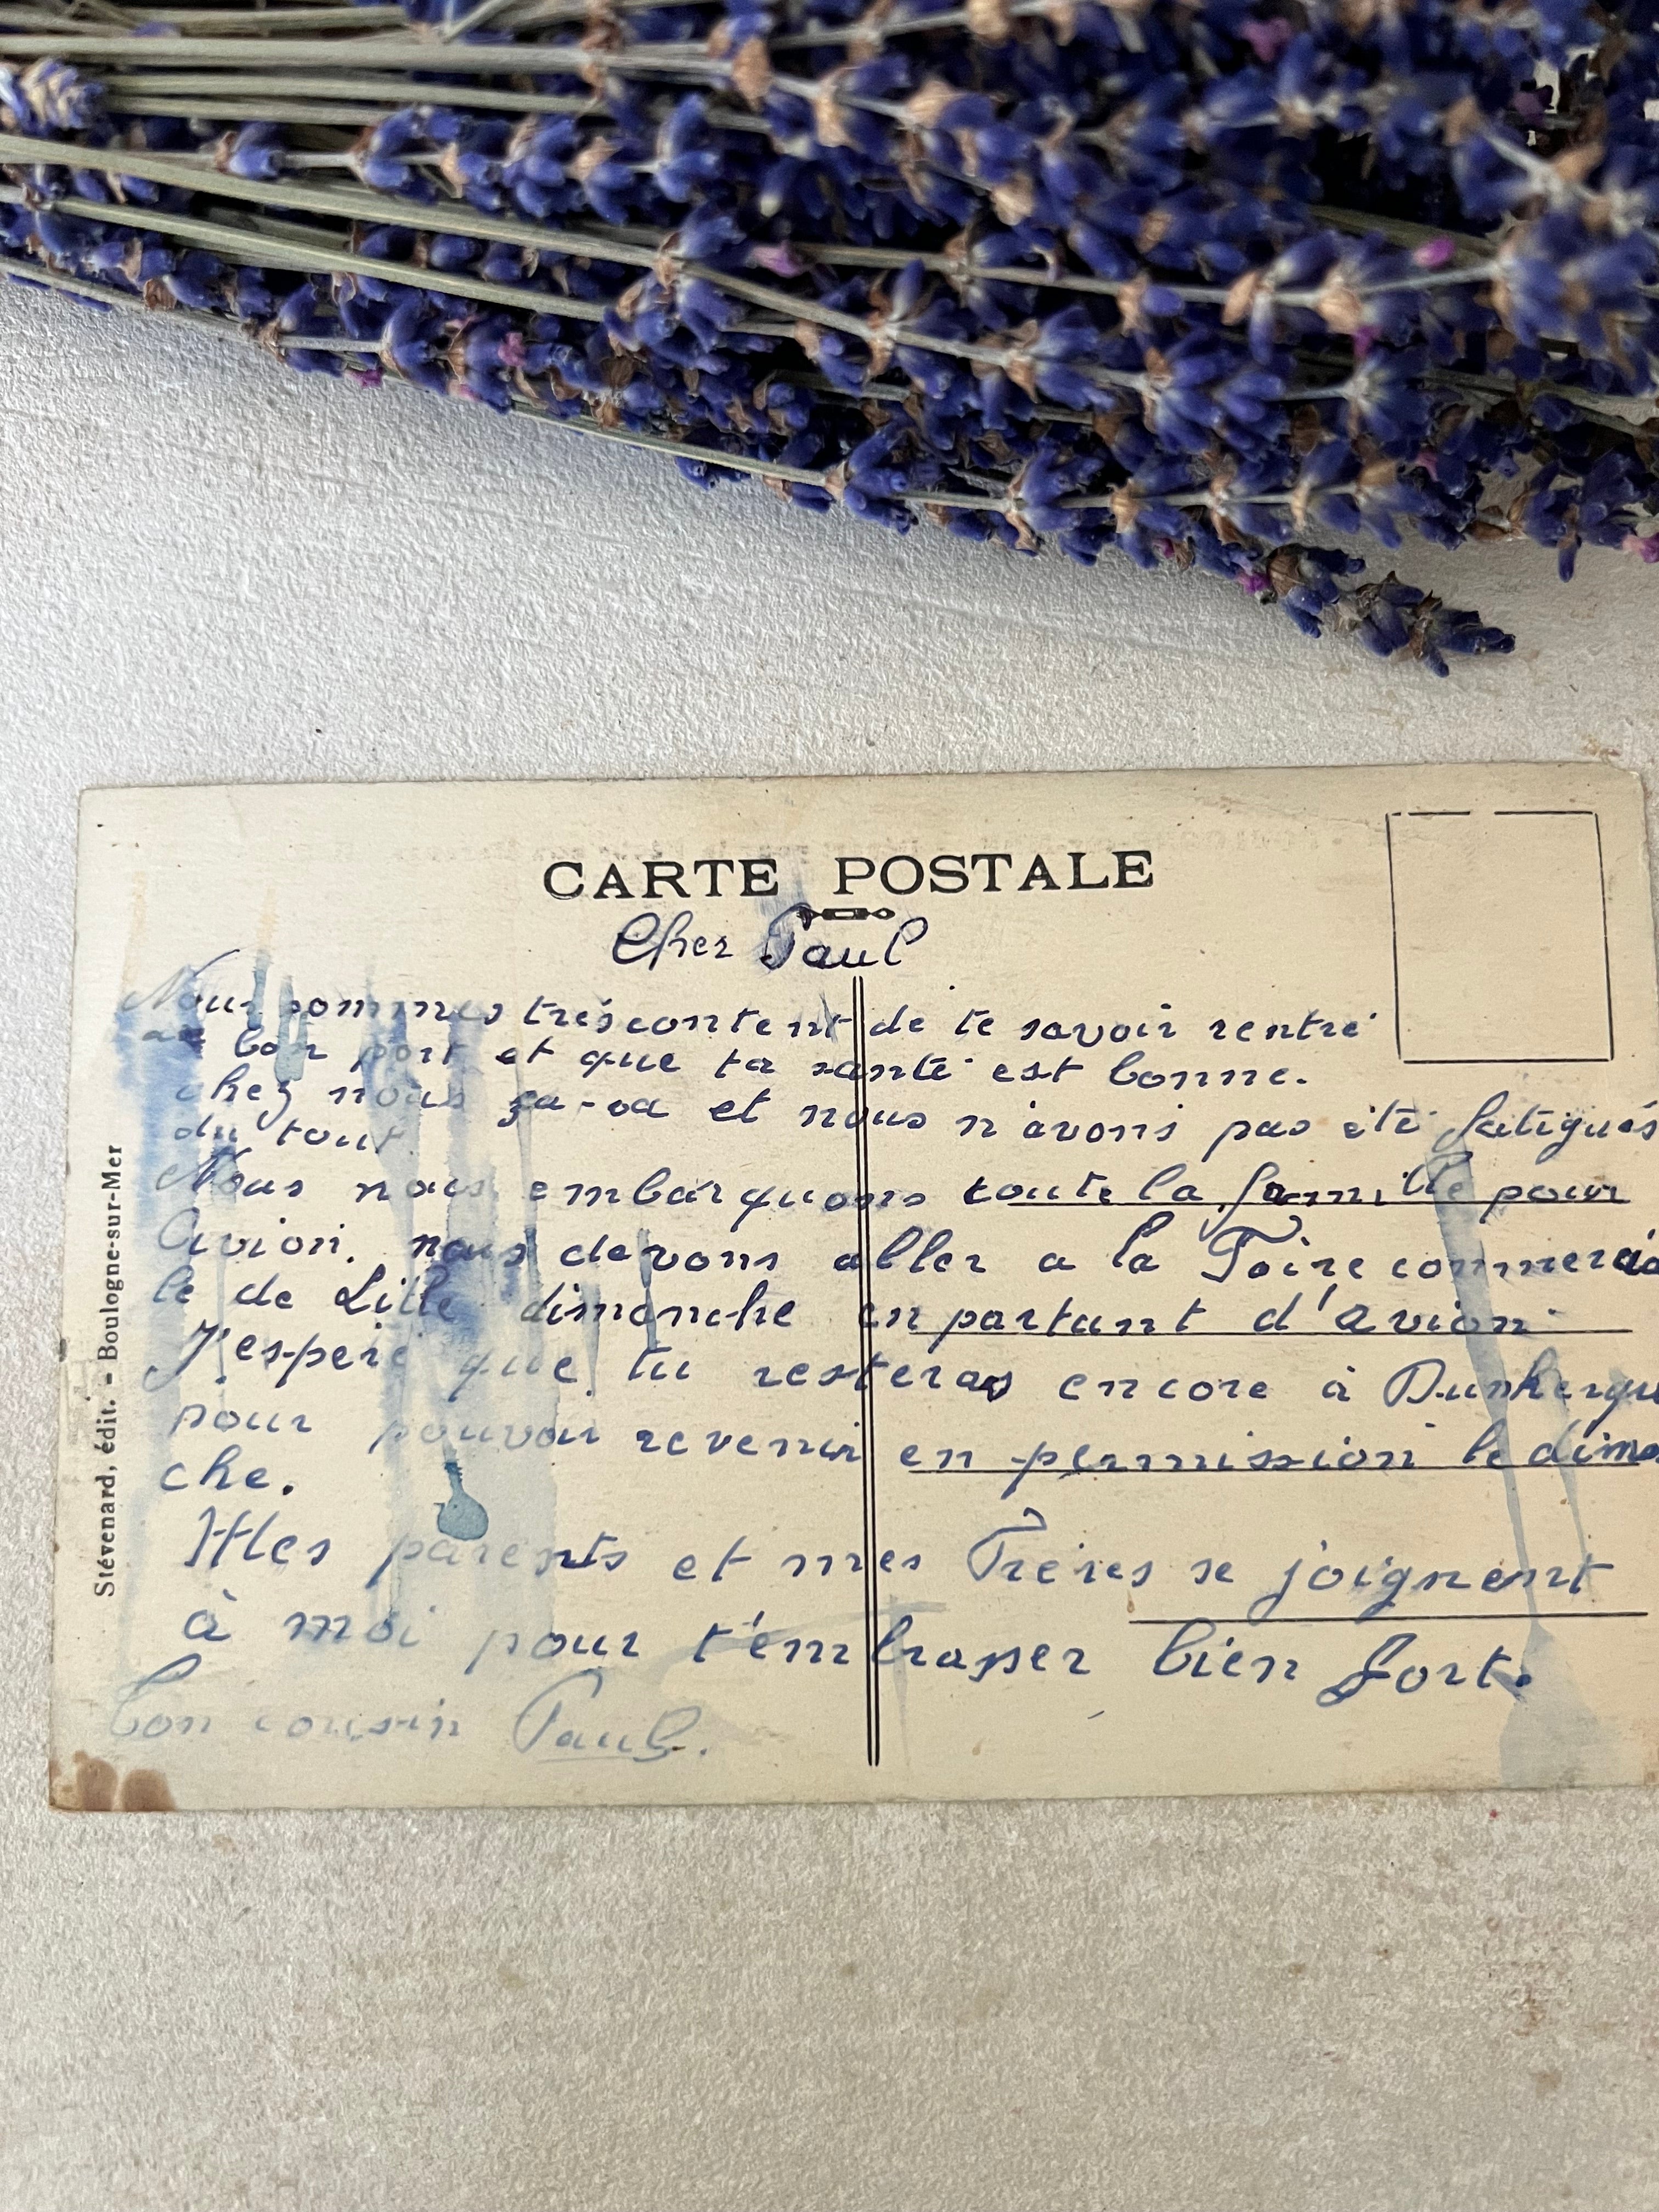 CARTE POSTALE
Cher Paul
Nous sommes très content de te savoir rentré
au bon port et que ta santé est bonne.
chez nous ça-va et nous n'avons pas été fatigués
du tout.
Nous nous embarquons toute la famille pour
Avion. nous devons aller a la Foire commercia
le de Lille dimanche en partant d'Avion.
J'espere que tu resteras encore à Dunkerque
pour pouvoir revenir en permission le diman
che.
Mes parents et mes Frères se joignent
à moi pour t'embrasser bien fort.
Ton cousin Paul.
Stévenard, édit. - Boulogne-sur-Mer